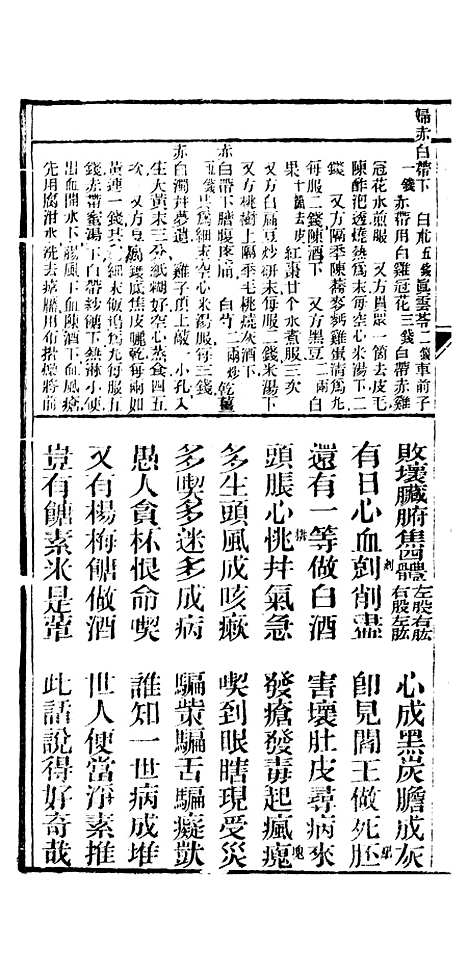 婦赤白帶下　白朮五錢真雲苓二錢車前子
一錢　赤帶用白雞冠花三錢白帶赤雞
冠花水煎服　又方胃眾一箇去皮毛
陳酢浥透燒熱為末每服空心米湯下二
錢　又方隔季陳蕎麥麪雞蛋清為丸
每服二錢陳酒下　又方黑豆二兩白
果十箇去皮紅棗廿个水煮服三次
又方白扁豆炒研末每服二錢米湯下
又方桃樹上隔季毛桃燒灰酒下
赤白帶下臍腹疼痛　白芍二兩炒乾薑
五錢共為細末空心米湯服每三錢
赤白濁幷夢遺　雞子頂上敲一小孔入
生大黃末三分紙糊好空心蒸食四五
次　又方豆腐鍋底焦皮曬乾每兩如
黃連一錢共細末飯搗為丸每服五
錢赤帶蜜湯下白帶紗糖下熱淋小便
出血開水下腸風下血陳酒下血風瘡
先用腐泔水洗去瘡靨用布揩燥將前
敗壞臟腑雋體左股有肱右股左肱　心成黑炭膽成灰
有日心血剉削盡　卽見閻王做死胚
還有一等做白酒　害壞肚皮尋病來
頭脹心恌幷氣急　發瘡發毒起瘋瘣
多生頭風成咳瘷　喫到眼瞎現受災
多喫多迷多成病　騙柴騙舌騙癡獃
愚人貪杯恨命喫　誰知一世病成堆
又有楊梅餹做酒　世人便當淨素推
豈有餹素米是葷　此話說得好奇哉